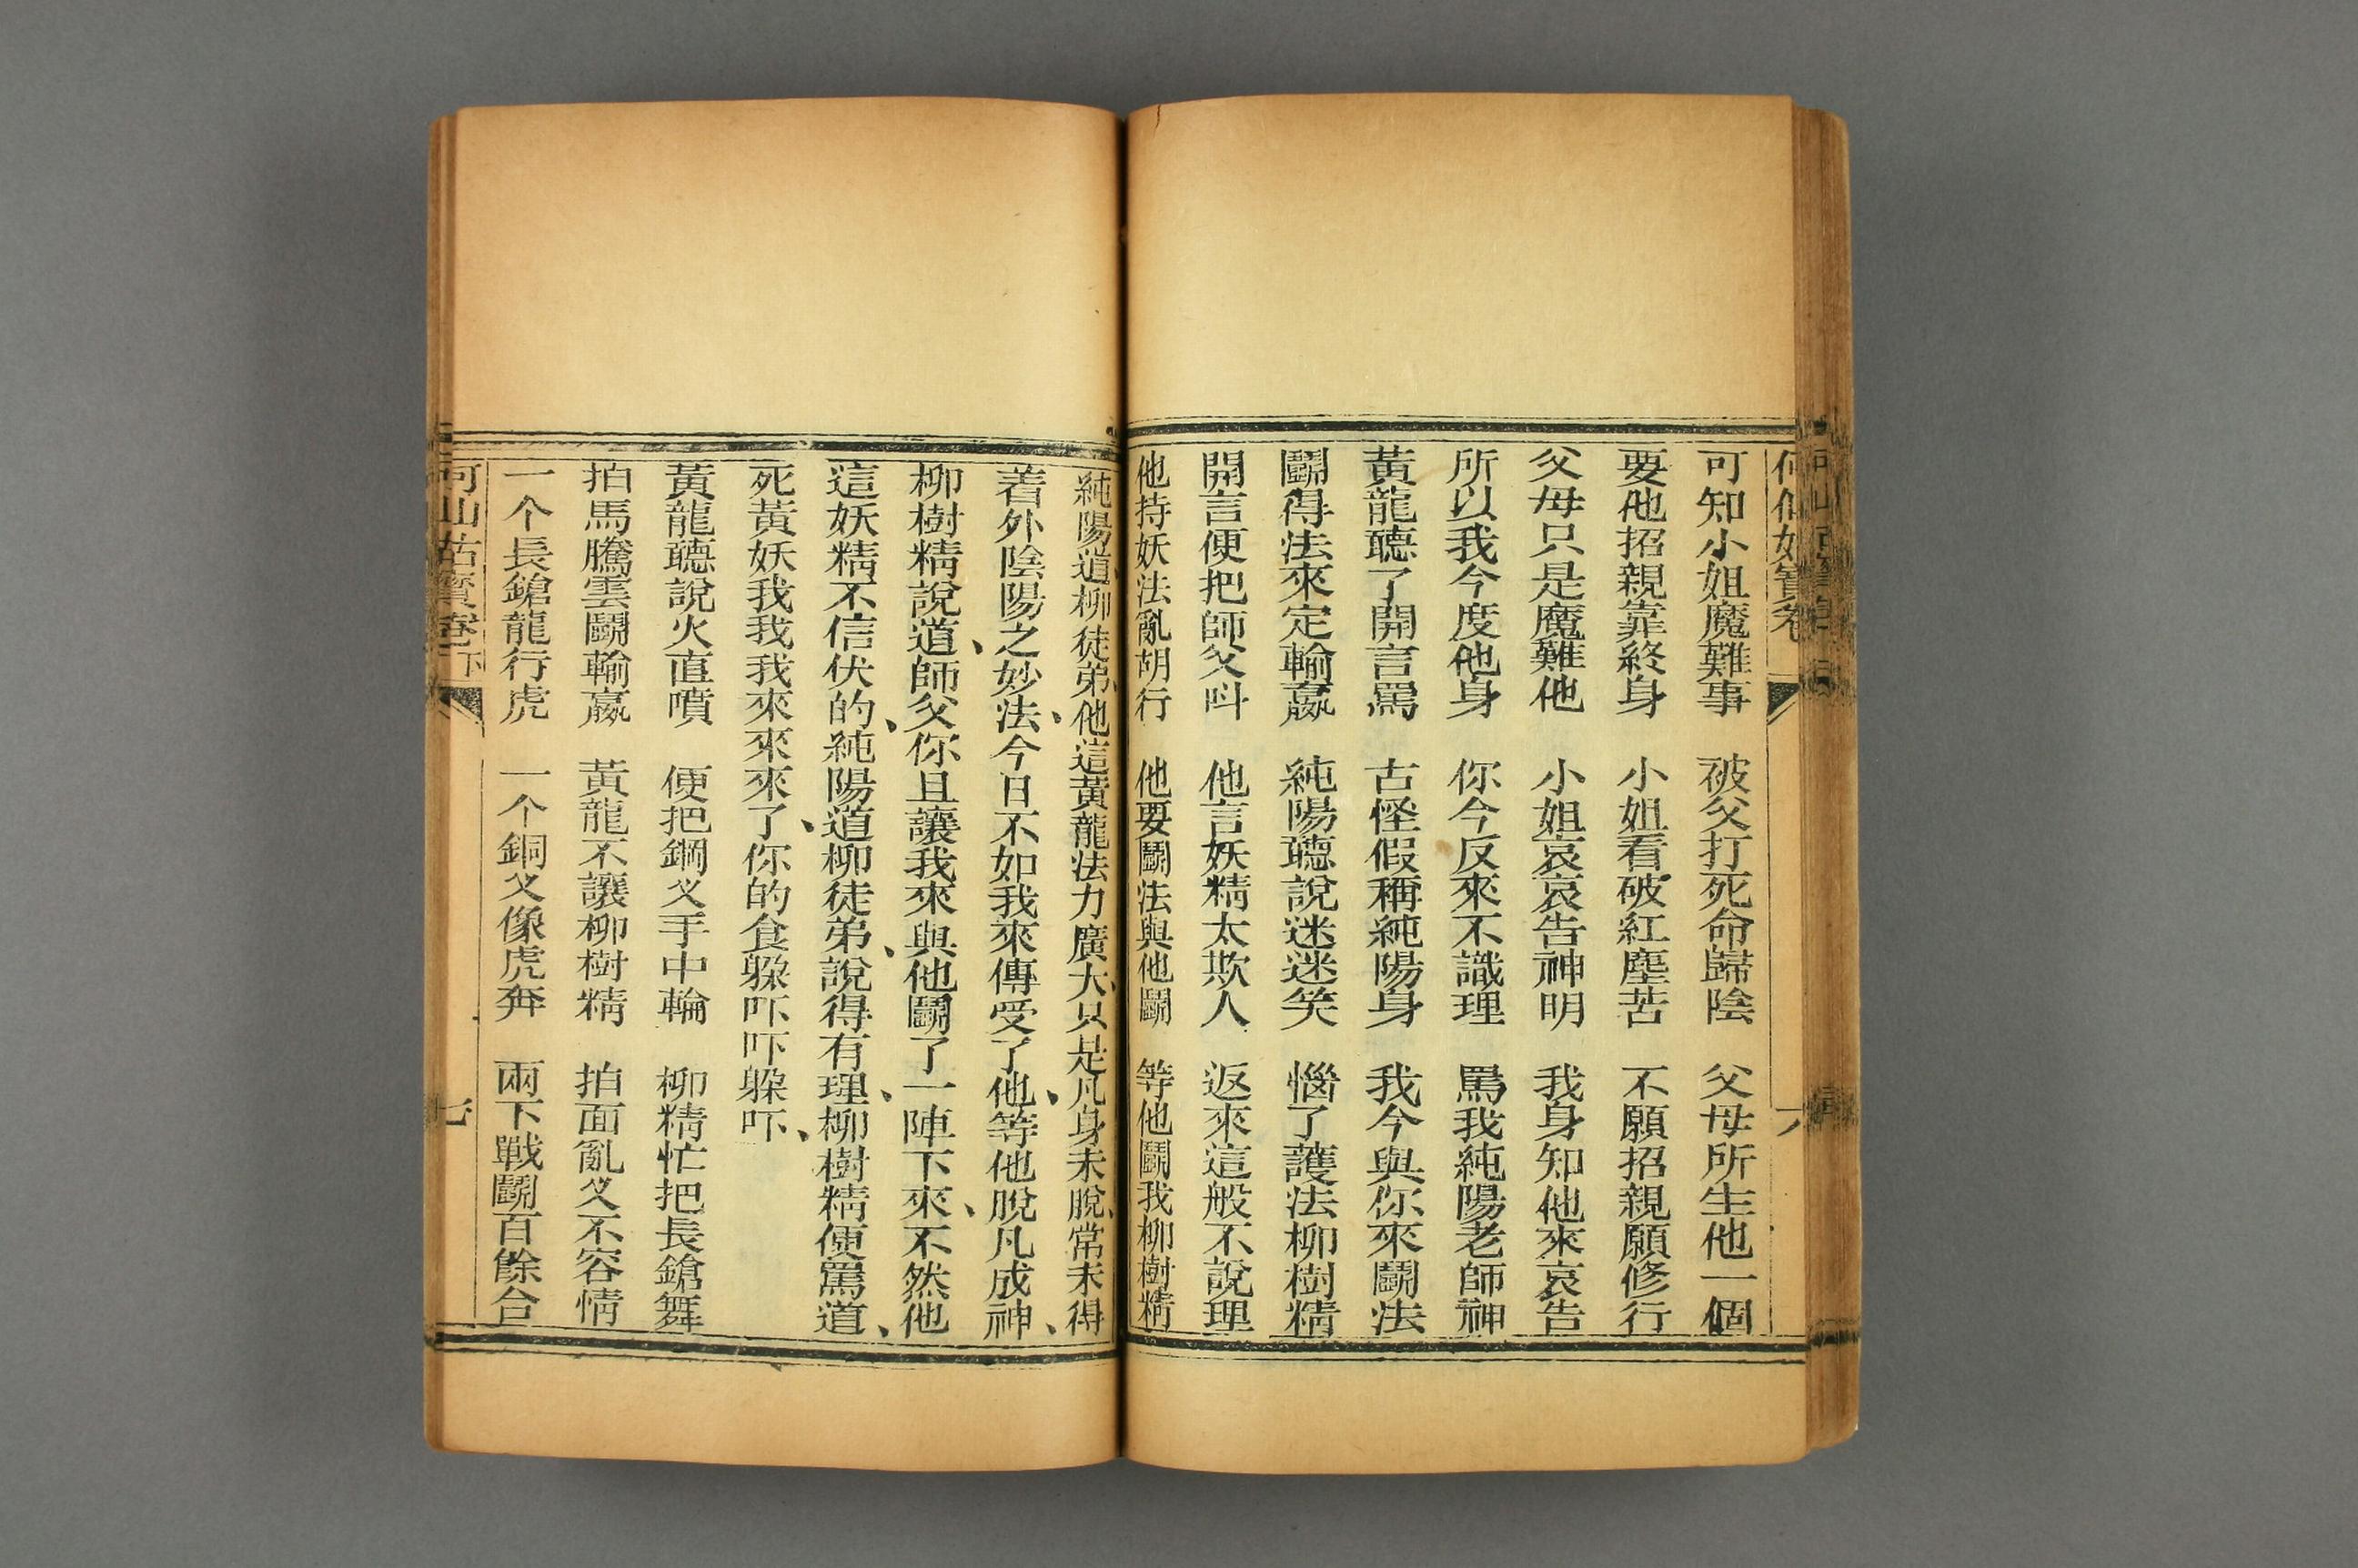 何仙姑寶卷 六
可知小姐魔難事 破父打死命歸陰 父母所生他一個
要他招親靠終身 小姐看破紅塵苦 不願招親願修行
父母只是魔難他 小姐哀哀告神明 我身知他來哀告
所以我今度他身 你今反來不識理 罵我純陽老師神
黃龍聽了開言罵 古怪假稱純陽身 我今與你來鬬法
鬬得法來定輸贏 純陽聽說迷迷笑 惱了護法柳樹精
開言便把師父呌 他言妖精太欺人 返來這般不說理
他持妖法亂胡行 他要鬬法與他鬬 等他鬬我柳樹精
純陽道柳徒弟、他這黃龍法力廣大、只是凡身未脫、常未得
着外陰陽之妙法、今日不如我來傳受了他、等他脫凡成神、
柳樹精說道、師父你且讓我來與他鬬了一陣下來、不然他
這妖精不信伏的、純陽道柳徒弟、說得有理、柳樹精便罵道、
死黃妖我我我來來來了、你的食躲吓吓躲吓、
黃龍聽說火直噴 便把鋼叉手中輪 柳精忙把長鎗舞
拍馬騰雲鬬輸贏 黃龍不讓柳樹精 拍面亂叉不容情
一个長鎗龍行虎 一个銅叉像虎奔 兩下戰鬬百餘合
何山姑寶卷下 七